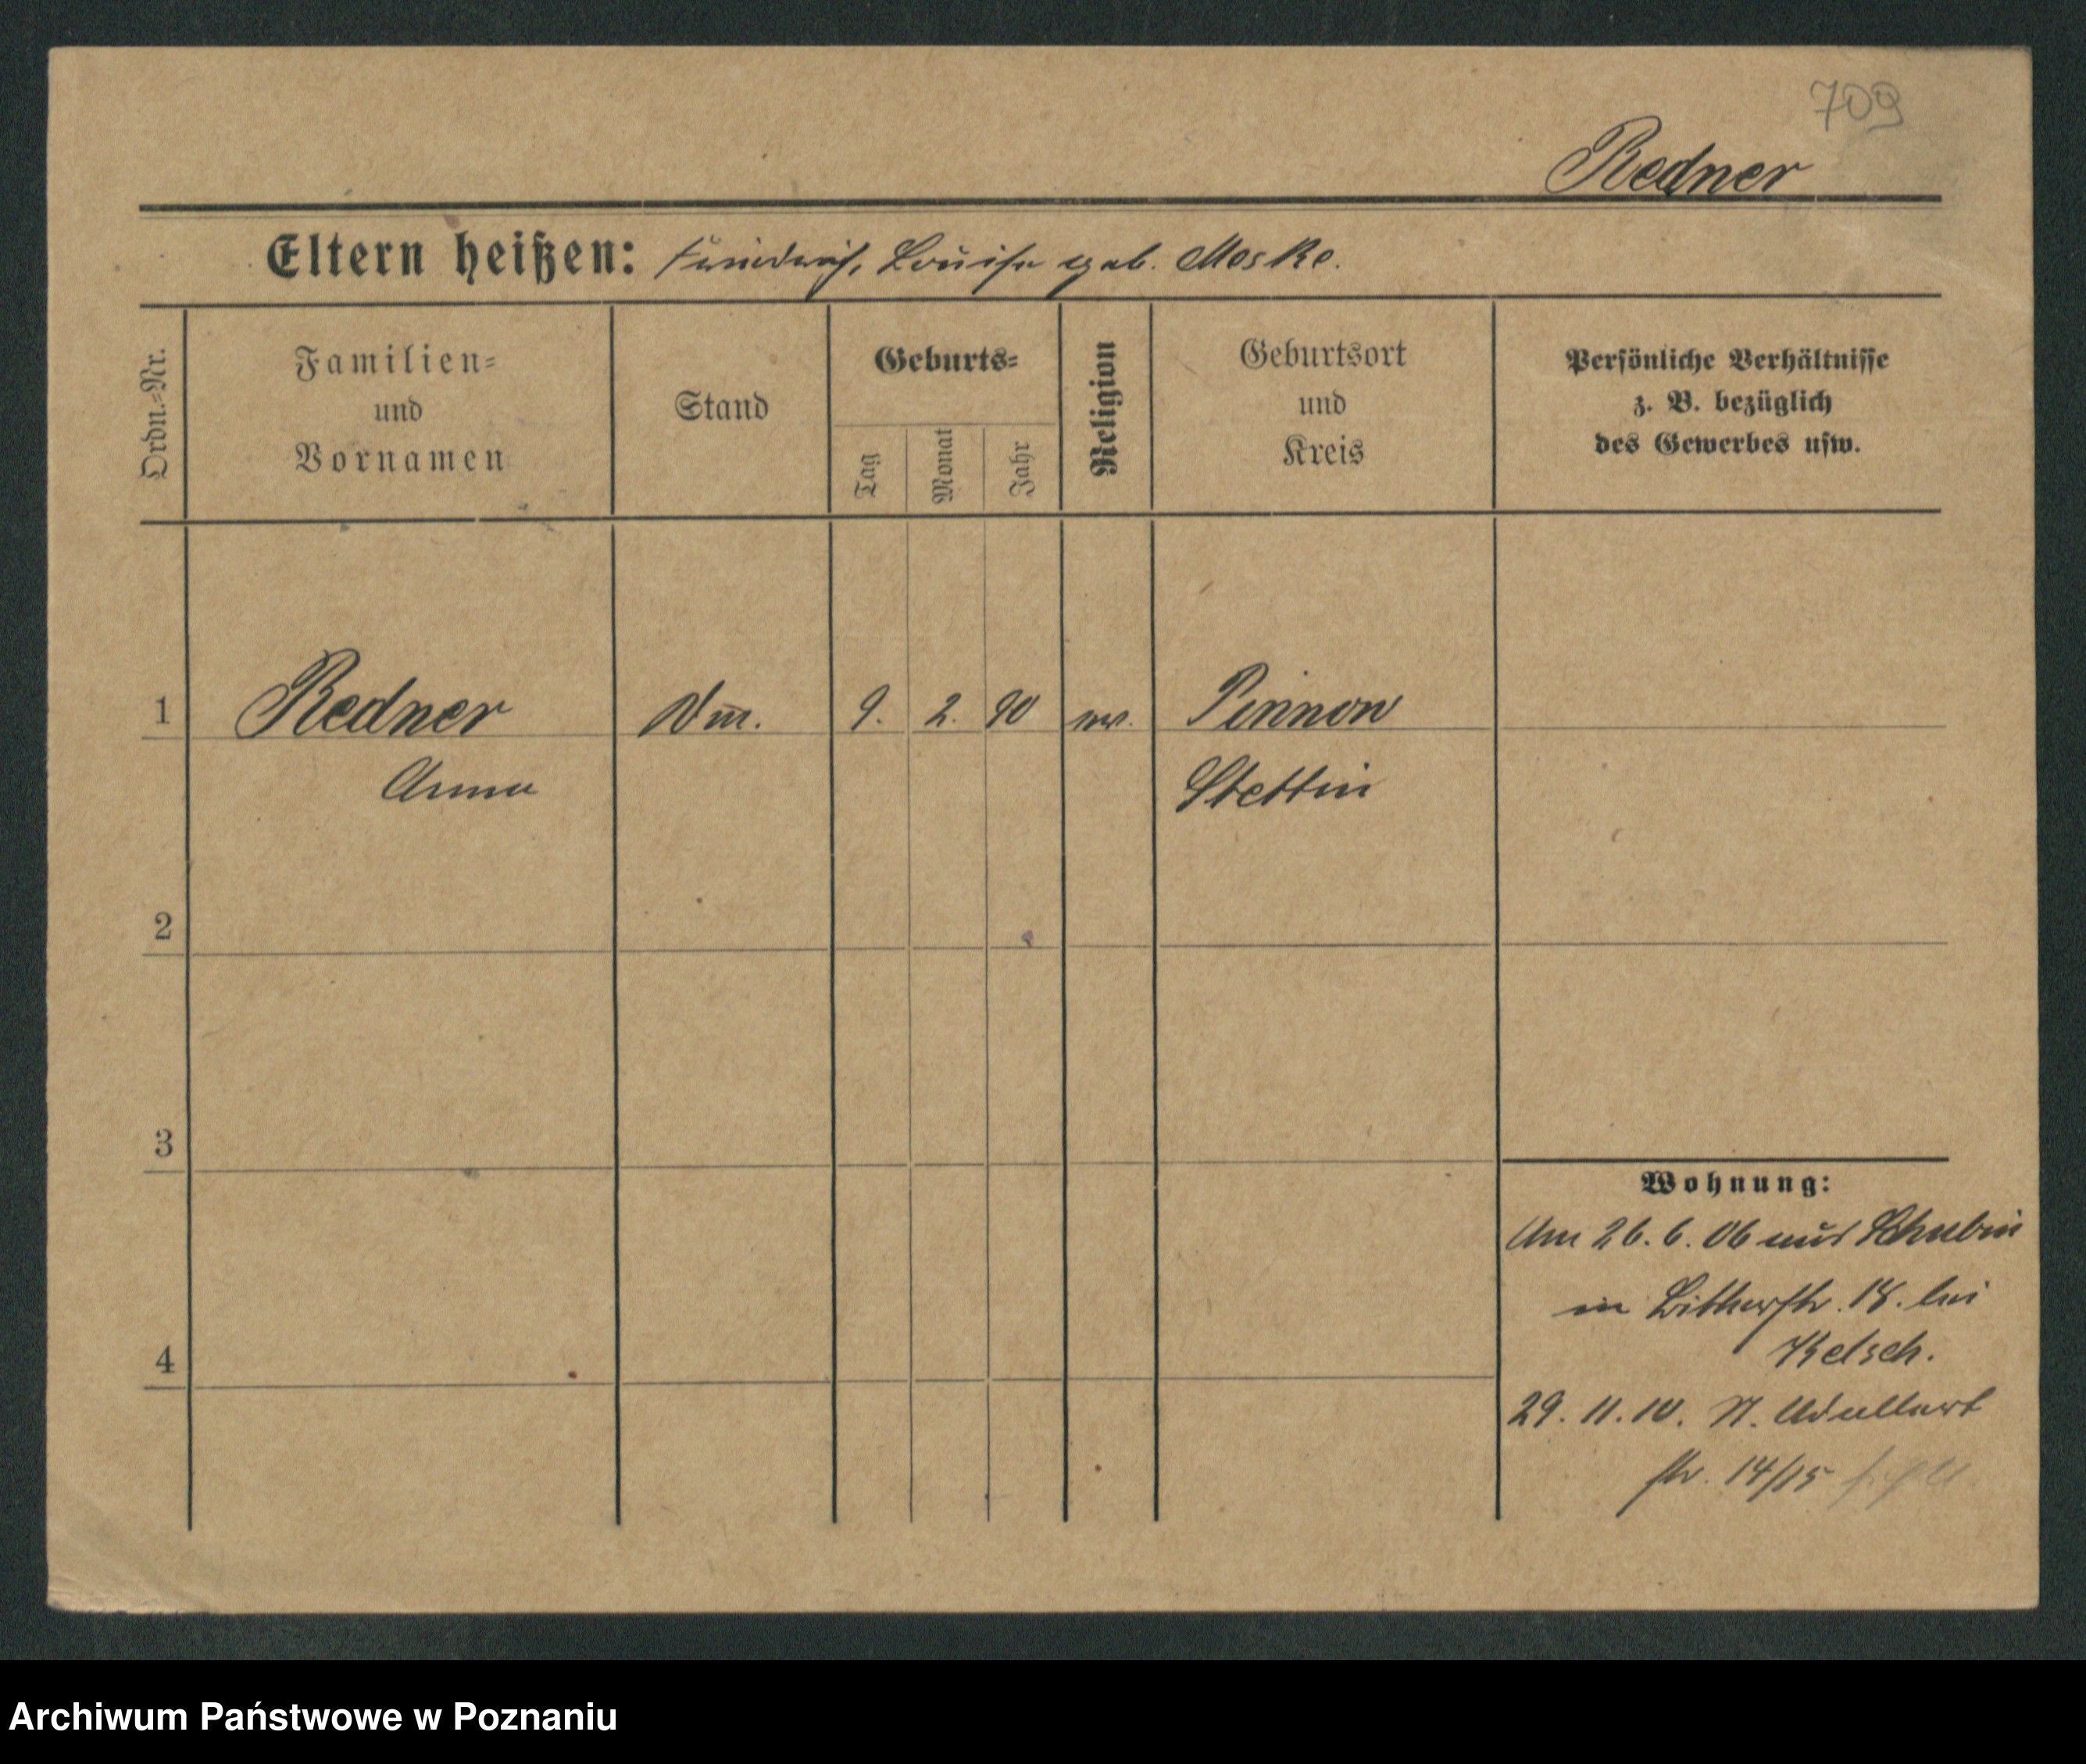 709
Redner
Eltern heißen: Friedrich, Louise geb. Meske.
Ordn.-Nr.
Familien-
und
Vornamen
Stand
Geburts-
Tag
Monat
Jahr
Religion
Geburtsort
und
Kreis
Persönliche Verhältnisse
z. B. bezüglich
des Gewerbes usw.
1 Redner 9. 2. 90 Pinnow
Anna Stettin
2
3
4
Wohnung:
Am 26. 6. 06 aus Schubin
in Bitterstr. 18. bei
Kelsch.
29. 11. 10. N. Adalbert
str. 14/15
Archiwum Państwowe w Poznaniu